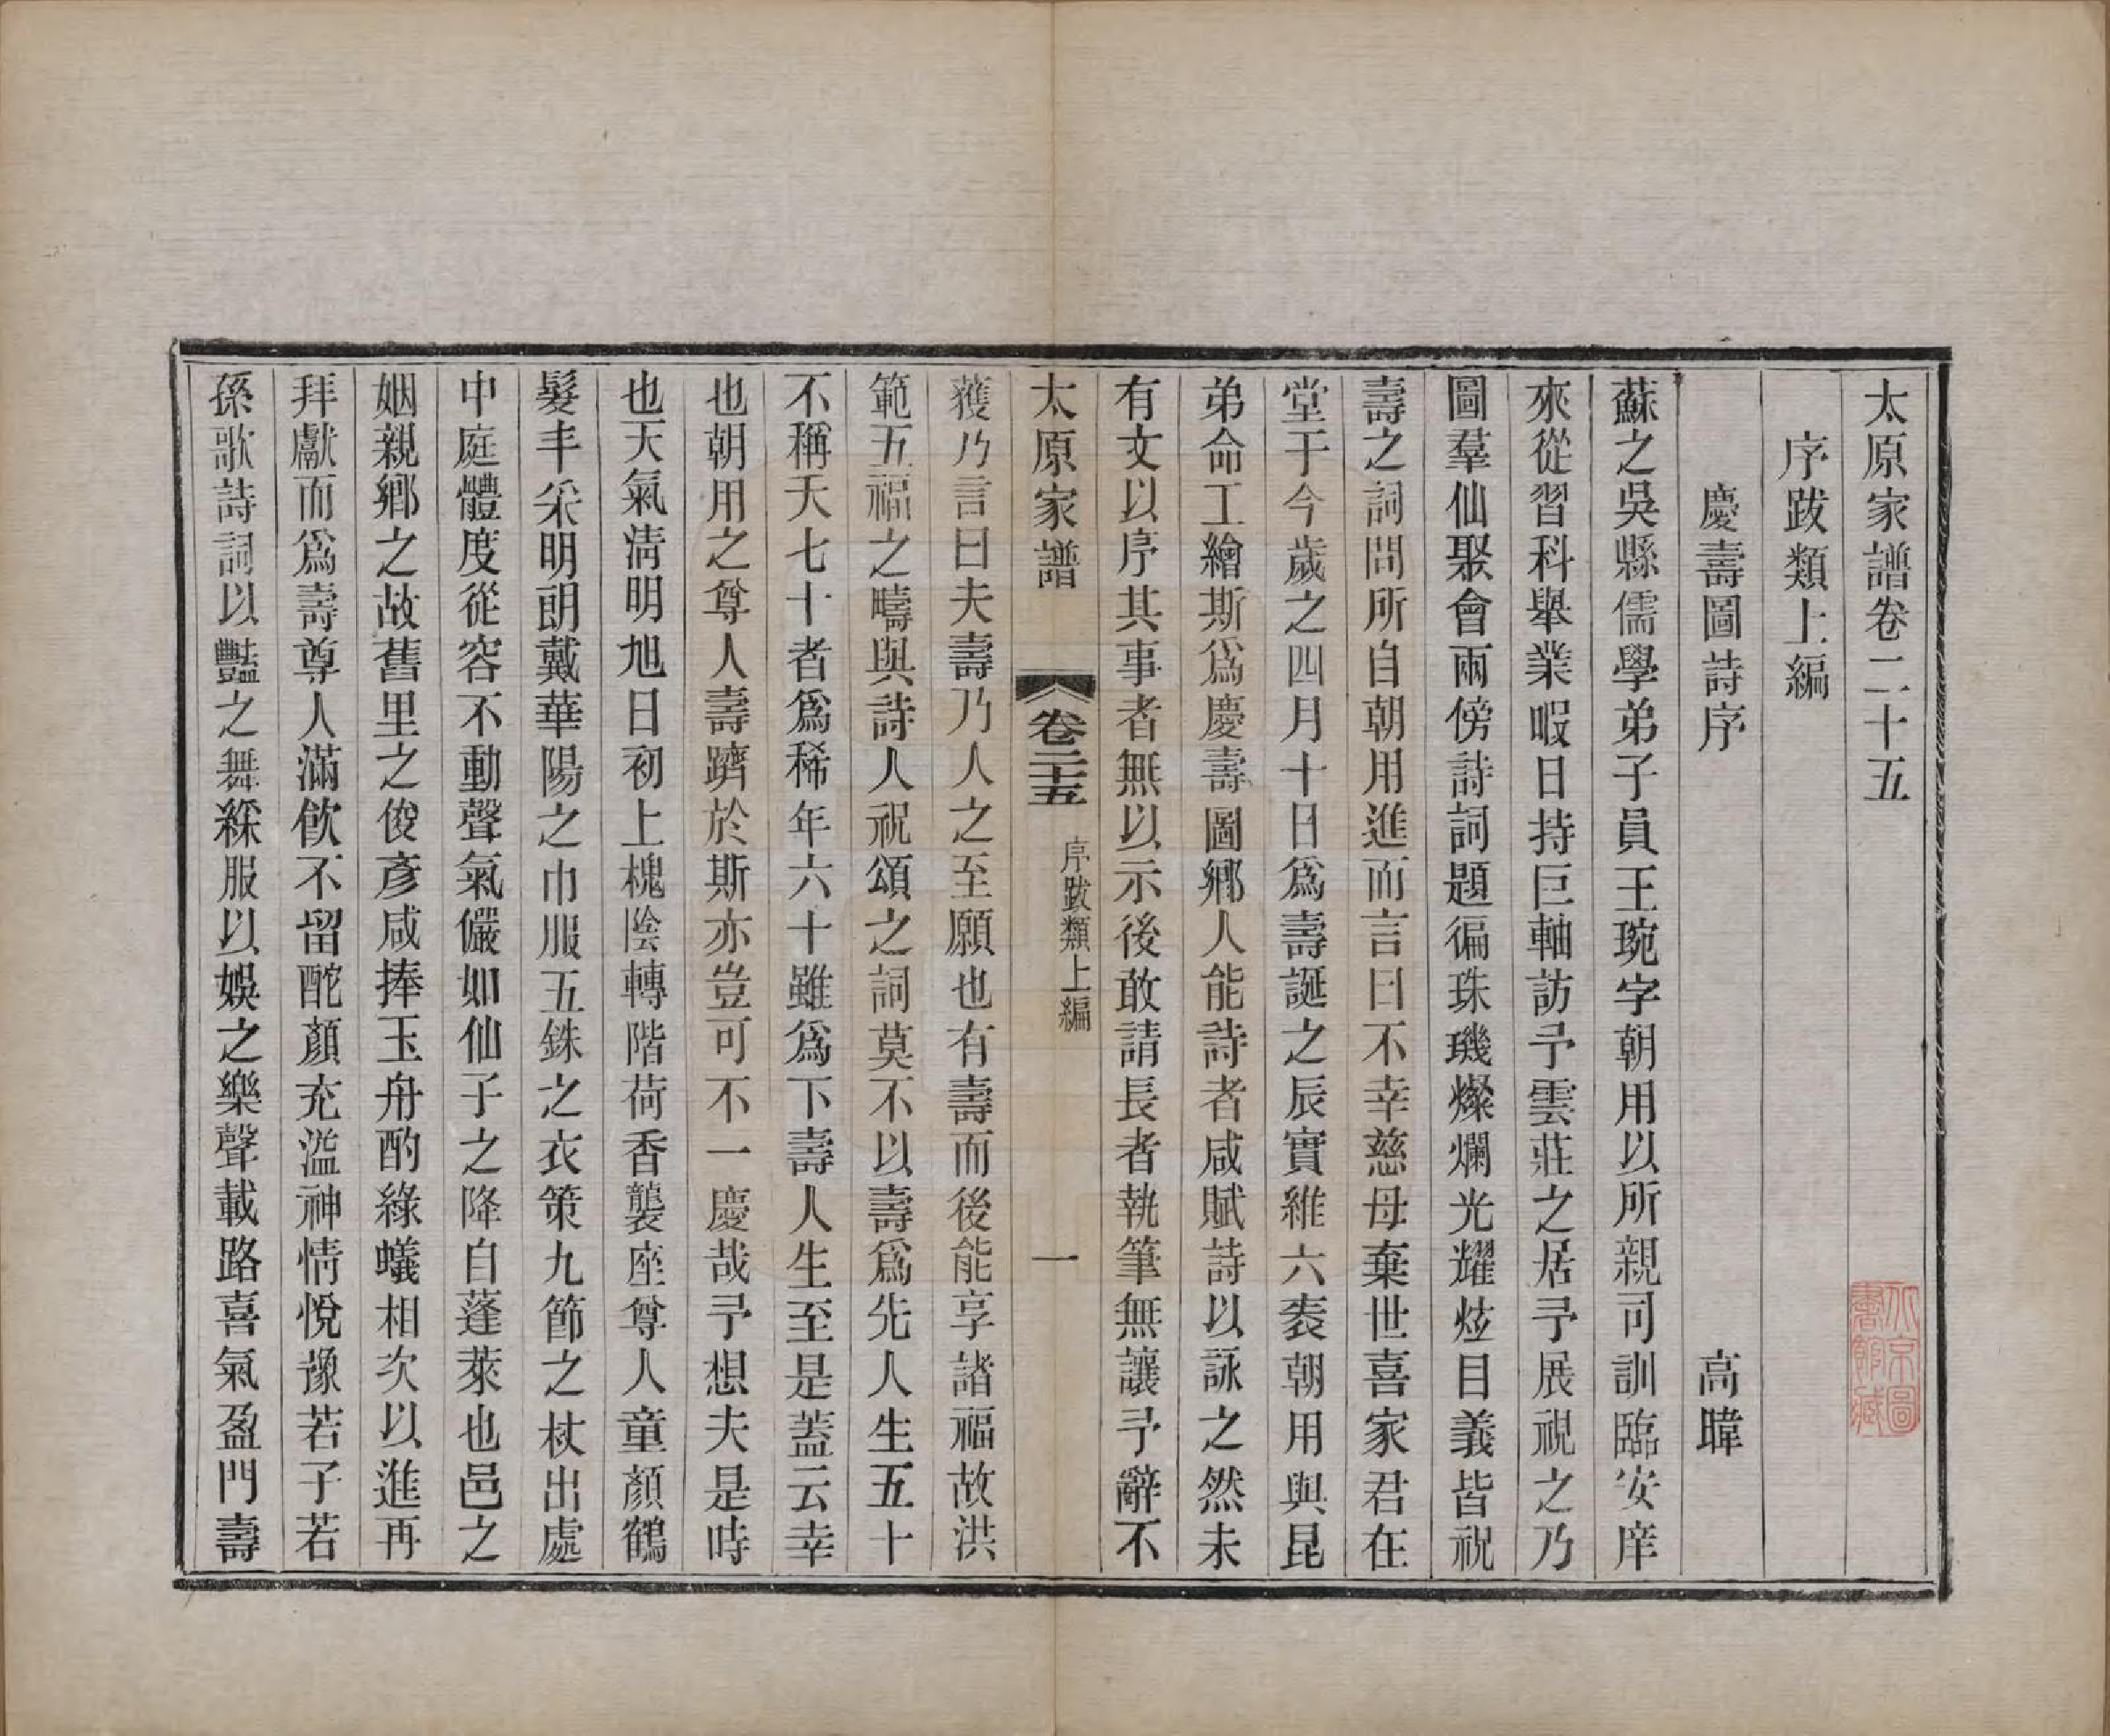 太原家譜卷二十五
序跋類上編
慶壽圖詩序　高暐
蘇之吳縣儒學弟子員王琬字朝用以所親司訓臨安庠
來從習科舉業暇日持巨軸訪予雲莊之居予展視之乃
圖羣仙聚會兩傍詩詞題徧珠璣燦爛光耀炫目義皆祝
壽之詞問所自朝用進而言曰不幸慈母棄世喜家君在
堂于今歲之四月十日爲壽誕之辰實維六袠朝用與昆
弟命工繪斯爲慶壽圖鄉人能詩者咸賦詩以詠之然未
有文以序其事者無以示後敢請長者執筆無讓予辭不
太原家譜　卷二十五　序跋類上編　一
獲乃言曰夫壽乃人之至願也有壽而後能享諸福故洪
範五福之疇與詩人祝頌之詞莫不以壽爲先人生五十
不稱夭七十者爲稀年六十雖爲下壽人生至是蓋云幸
也朝用之尊人壽躋於斯亦豈可不一慶哉予想夫是時
也天氣淸明旭日初上槐陰轉階荷香襲座尊人童顏鶴
髮丰采明朗戴華陽之巾服五銖之衣策九節之杖出處
中庭體度從容不動聲氣儼如仙子之降自蓬萊也邑之
姻親鄉之故舊里之俊彥咸捧玉舟酌綠蟻相次以進再
拜獻而爲壽尊人滿飮不留酡顏充溢神情悅豫若子若
孫歌詩詞以豔之舞綵服以娛之樂聲載路喜氣盈門壽
北京圖
書館藏